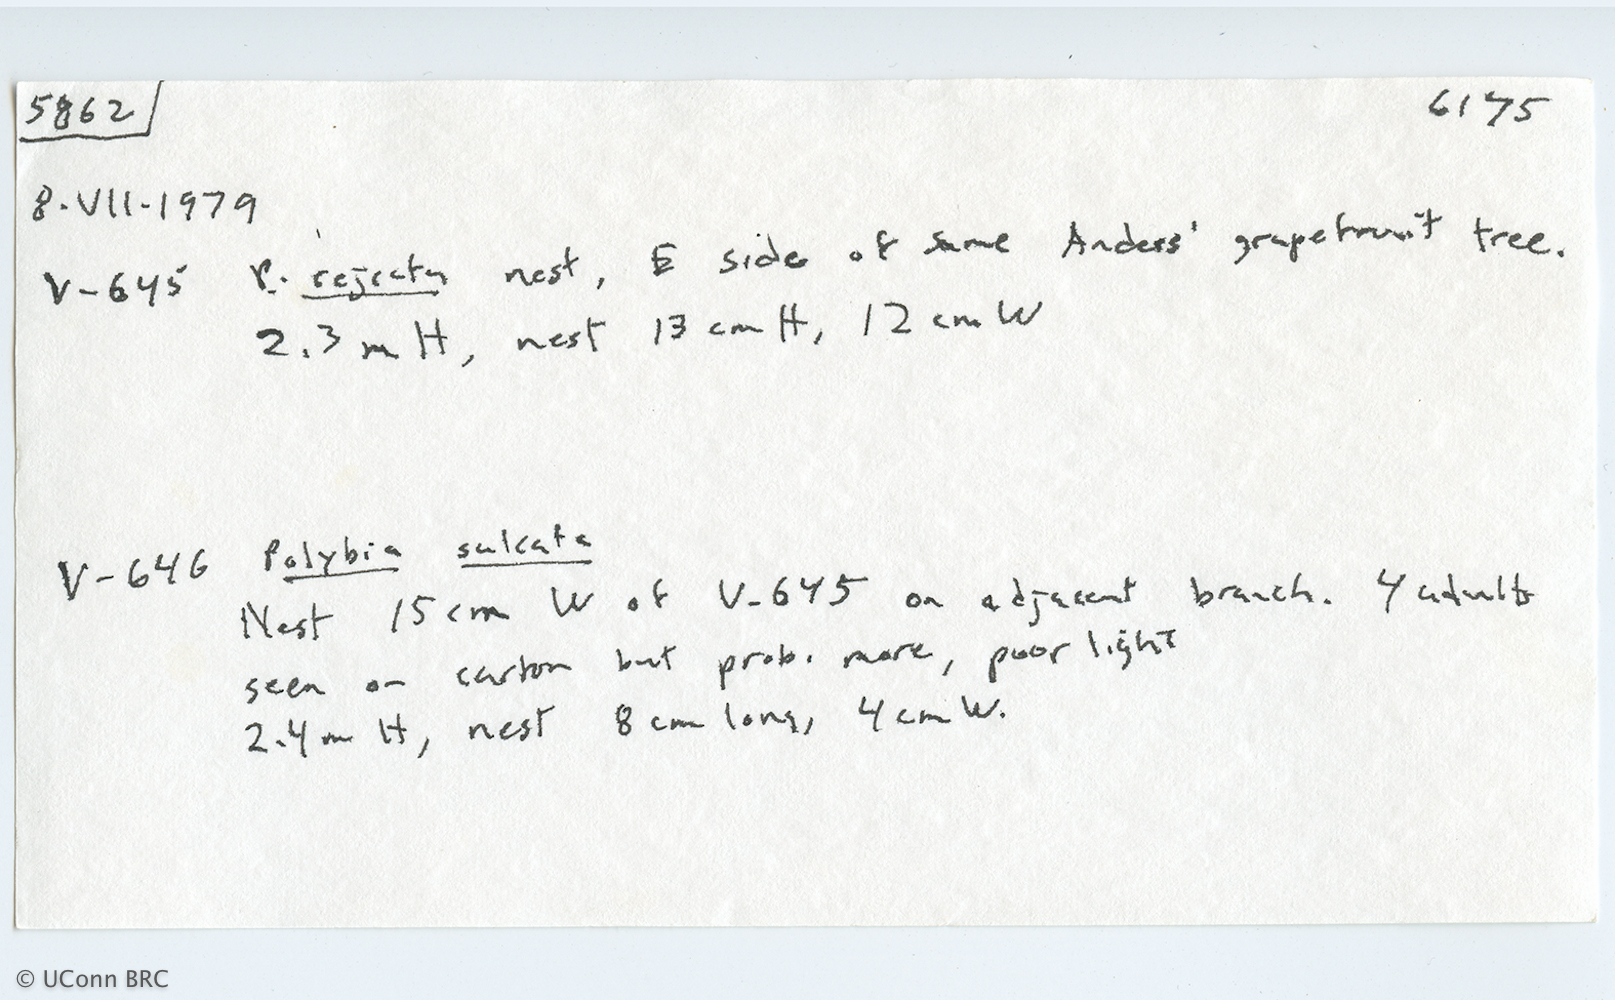 5862
6175
8.VII.1979
V-645 P. rejecta nest, E side of same Anders' grapefruit tree.
2.3 m H, nest 13 cm H, 12 cm W
V-646 Polybia sulcata
Nest 15 cm W of V-645 on adjacent branch. 4 adults
seen on carton but prob. more, poor light
2.4 m H, nest 8 cm long, 4 cm W.
© UConn BRC